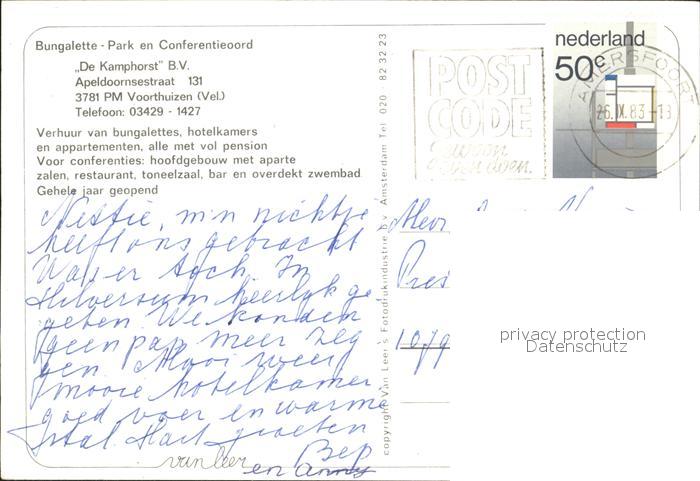 Bungalette - Park en Conferentieoord
„De Kamphorst" B.V.
Apeldoornsestraat 131
3781 PM Voorthuizen (Vel.)
Telefoon: 03429 - 1427
Verhuur van bungalettes, hotelkamers
en appartementen, alle met vol pension
Voor conferenties: hoofdgebouw met aparte
zalen, restaurant, toneelzaal, bar en overdekt zwembad
Gehele jaar geopend
Nettie, m'n nichtje
heeft ons gebracht
Was er toch. In
Hilversum heerlijk ge
geten. We konden
geen pap meer zeg
gen. Mooi weer
mooie hotelkamer
goed voer en warme
stal. Hart groeten
Bep
van leer en anny
copyright Van Leer's Fotodrukindustrie b.v. Amsterdam Tel. 020 82 32 23
POST
CODE
gewoon
even doen.
nederland
50c
AMERSFOORT
26.IX.83-18
Mevr
Pres
1079
privacy protection
Datenschutz